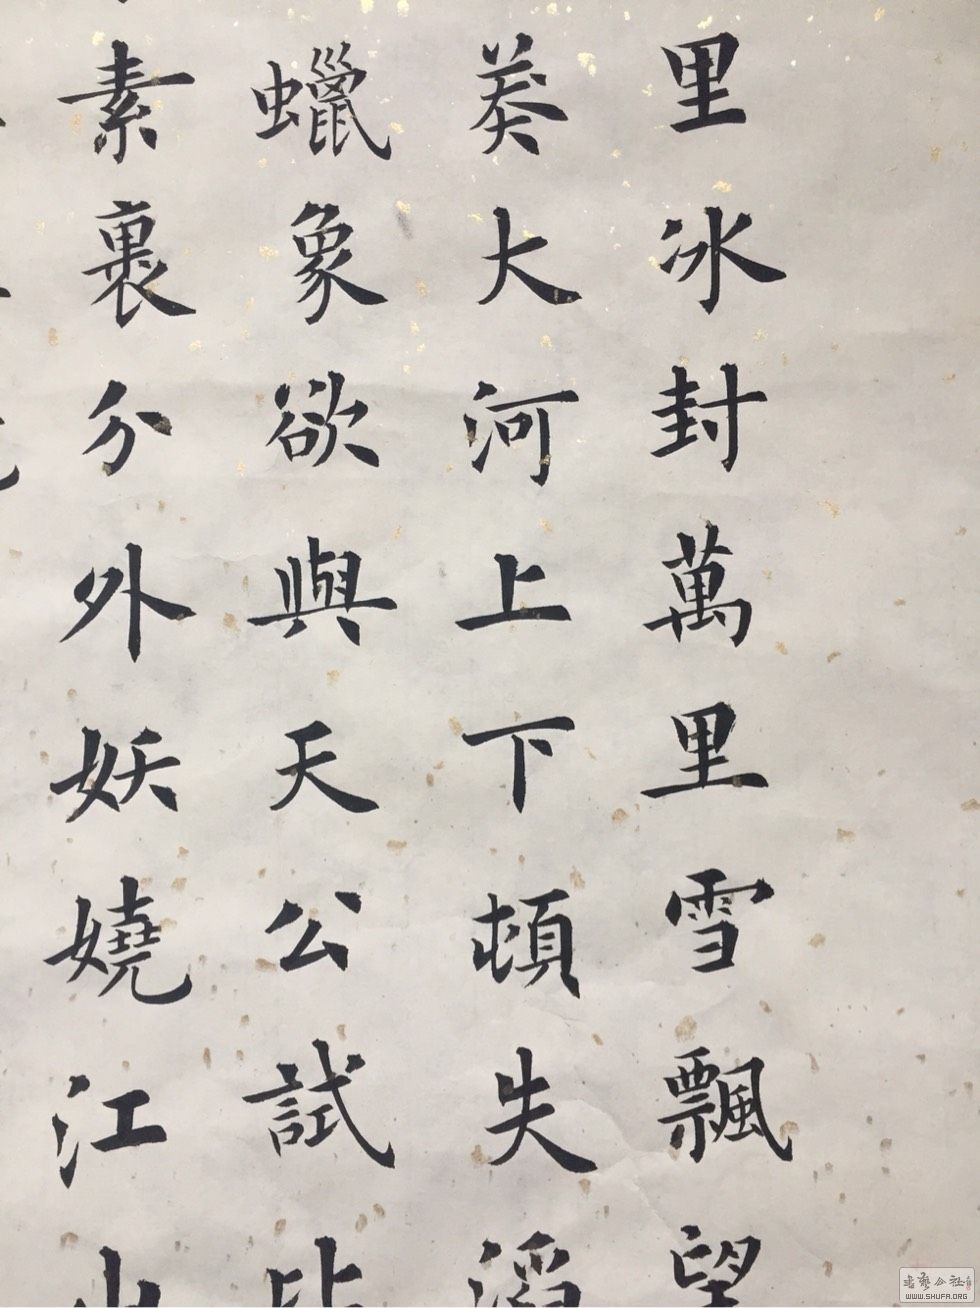 里冰封萬里雪飄望
莽大河上下頓失滔
蠟象欲與天公試比
素裹分外妖嬈江山
書藝公社
WWW.SHUFA.ORG